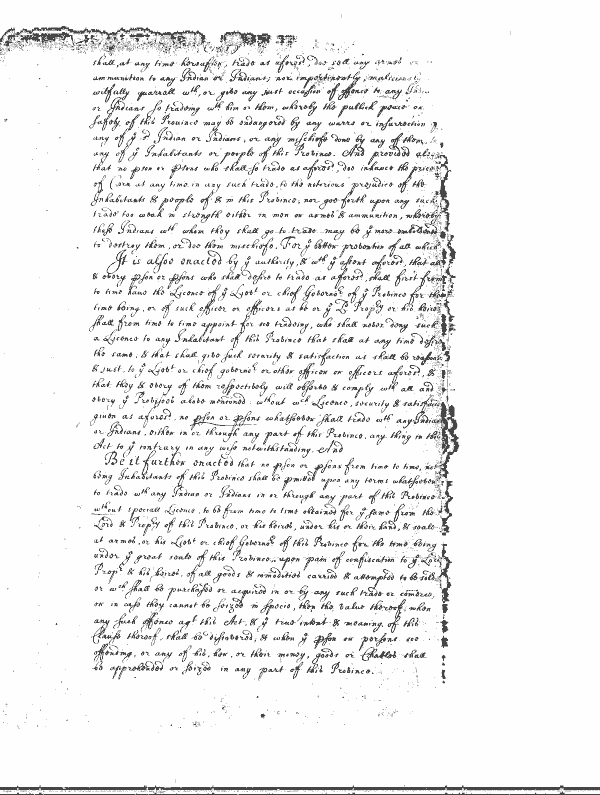 shall, at any time hereafter, trade as aforesd, doe sell any armes or
ammunition to any Indian or Indians, nor impertinently, maliciously
wilfully quarrall wth, or give any just occasion of offence to any Indian
or Indians so tradeing wth him or them, whereby the publick peace or
safety of this Province may be endangered by any warrs or insurrection
any of ye sd Indian or Indians, or any mischiefs done by any of them
any of ye Inhabitants or people of this Province. And provided alsoe
that no pson or psons who shall so trade as aforesd, doe inhance the price
of Corn at any time in any such trade, to the notorious prejudice of the
Inhabitants & people of & in this Province, nor goe forth upon any such
trade too weak in strength either in men or armes & ammunition, whereby
these Indians wth whom they shall go to trade may be ye more emboldened
to destroy them, or doe them mischiefs. For ye better prevention of all which
It is alsoe enacted by ye authority, & wth ye assent aforesd, that all
& every pson or psons who shall desire to trade as aforesd, shall first from
time to time have the Licence of ye Govr or chief Governor of ye Province for the
time being, or of such officer or officers as he or ye Ld Propry or his heires
shall from time to time appoint for soe tradeing, who shall never deny such
a Licence to any Inhabitant of this Province that shall at any time desire
the same, & that shall give such security & satisfaction as shall be reasonable
& just, to ye Govr or chief governor or other officer or officers aforesd, &
that they & every of them respectively will observe & comply wth all and
every ye Provisoes above mentioned. wthout wch Licence, security & satisfaction
given as aforesd, no pson or psons whatsoever shall trade wth any Indian
or Indians, either in or through any part of this Province, any thing in this
Act to ye contrary in any wise notwithstanding. And
Be it further enacted that no pson or psons from time to time, not
being Inhabitants of this Province shall be pmitted upon any terms whatsoever
to trade wth any Indian or Indians in or through any part of this Province
wthout speciall Licence, to be from time to time obtained for ye same from the
Lord & Propry of this Province, or his heires, under his or their hand, & seale
at armes, or his Govr or chief Governor of this Province for the time being
under ye great seale of this Province, upon pain of confiscation to ye Lord
Propry & his heires, of all goods & commodities carried & attempted to be sold
or wch shall be purchased or acquired in or by any such trade or comerce,
or in case they cannot be seized in specie, then the value thereof, when
any such offence agt this Act, & ye true intent & meaning of this
Clause thereof, shall be discovered, & when ye pson or persons soe
offending, or any of his, her, or their money, goods or Chattels shall
be apprehended or seized in any part of this Province.